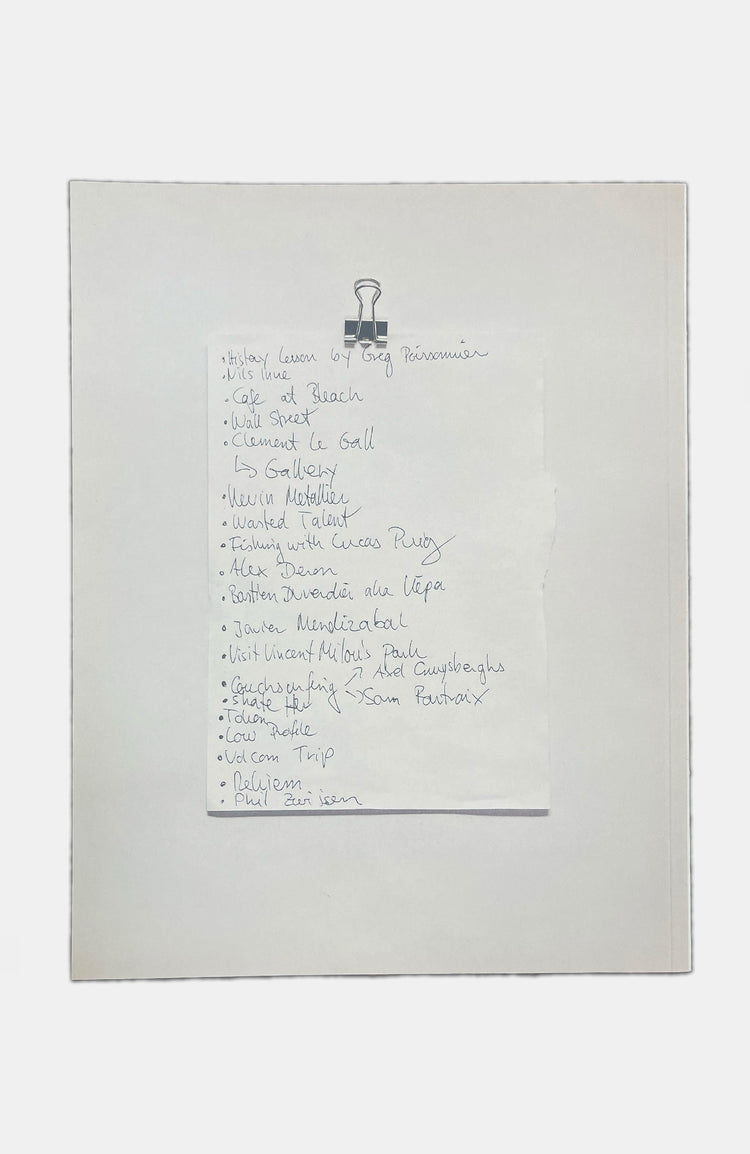 • History Lesson by Greg Poissonnier
• Nils Inne
• Cafe at Bleach
• Wall Street
• Clement Le Gall
↳ Gallery
• Kevin Metallier
• Wasted Talent
• Fishing with Lucas Puig
• Alex Deron
• Bastien Duverdier aka Vépa
• Javier Mendizabal
• Visit Vincent Milou's Park
↗ Axel Cruysberghs
• Couchsurfing
↘ Sam Partaix
• Skate Her
• Token
• Low Profile
• Volcom Trip
• Rekiem
• Phil Zwijsen